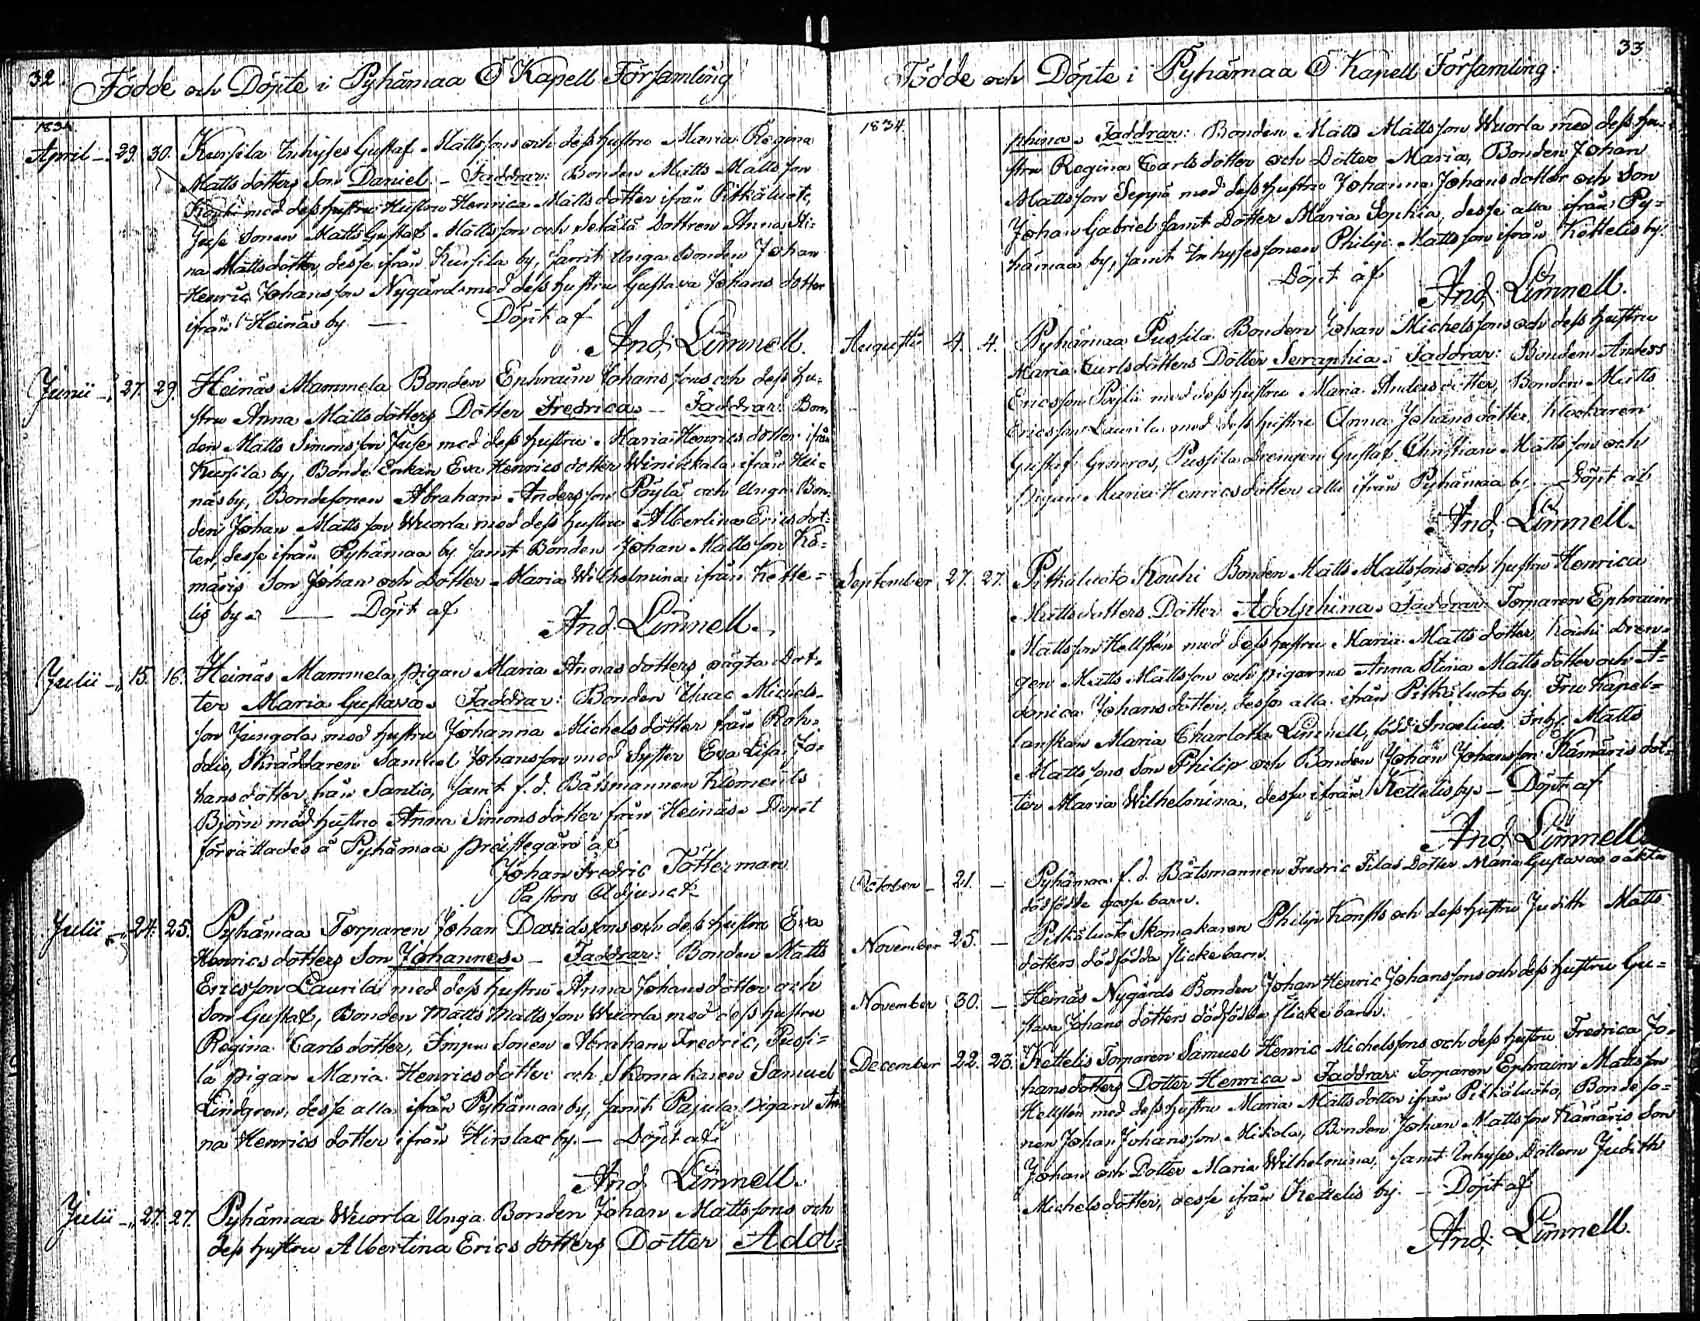 32. Födde och Döpte i Pyhämaa Ö Kapell Församling
1834.
April 29. 30. Kursila Inhyses Gustaf Mattssons och dess hustru Maria Regina
Matts dotters Son Daniel. Faddrar: Bonden Matts Mattsson
Kouhi med dess hustru Hustru Henrica Matts dotter ifrån Pitkäluoto,
Juse Sonen Matts Gustaf Mattsson och Dottren Anna Sti-
na Matts dotter, desse ifrån Kursila by, samt Unga Bonden Johan
Henric Johansson Nygård med dess hustru Gustava Johans dotter
ifrån Heinäs by. Döpt af
And. Limnell.
Junii 27. 29. Heinäs Mammela Bonden Ephraim Johanssons och dess hu-
stru Anna Matts dotters Dotter Fredrica. Faddrar: Bon-
den Matts Simonsson Juse med dess hustru Maria Henrics dotter ifrån
Kursila by, Bonde Enkan Eva Henrics dotter Winikkala ifrån Hei-
näs by, Bondesonen Abraham Andersson Pöylä och Unga Bon-
den Johan Mattsson Wuorla med dess hustru Albertina Erics dot-
ter, desse ifrån Pyhämaa by samt Bonden Johan Mattsson Kä-
märis Son Johan och Dotter Maria Wilhelmina ifrån Kette-
lis by. Döpt af
And. Limnell.
Julii 15. 16. Heinäs Mammela pigan Maria Annas dotters oägta Dot-
ter Maria Gustava. Faddrar: Bonden Isaac Michels-
son Jungola med hustru Johanna Michels dotter från Roh-
dais, Skräddaren Samuel Johansson med Syster Eva Lisa Jo-
hans dotter från Santio, samt f. d. Båtsmannen Klemens
Björn med hustru Anna Simons dotter från Heinäs. Dopet
förrättades å Pyhämaa prästegård af
Johan Fredric Tötterman
Pastors Adjunct.
Julii 24. 25. Pyhämaa Torparen Johan Davidssons och dess hustru Eva
Henrics dotters Son Johannes. Faddrar: Bonden Matts
Ericsson Laurila med dess hustru Anna Johans dotter och
Son Gustaf, Bonden Matts Mattsson Wuorla med dess hustru
Regina Carls dotter, Sonen Abraham Fredric, Pussi-
la pigan Maria Henrics dotter och Skomakaren Samuel
Lindgren, desse alla ifrån Pyhämaa by, samt Pajula pigan An-
na Henrics dotter ifrån Hirslax by. Döpt af
And. Limnell.
Julii 27. 27. Pyhämaa Wuorla Unga Bonden Johan Mattssons och
dess hustru Albertina Erics dotters Dotter Adol-
33
Födde och Döpte i Pyhämaa Ö Kapell Församling:
1834.
phina. Faddrar: Bonden Matts Mattsson Wuorla med dess hu-
stru Regina Carls dotter och Dotter Maria, Bonden Johan
Mattsson Seppä med dess hustru Johanna Johans dotter och Son
Johan Gabriel samt Dotter Maria Sophia, desse alla ifrån Py-
hämaa by, samt Inhyses sonen Philip Mattsson ifrån Kettelis by.
Döpt af
And. Limnell.
Augusti 4. 4. Pyhämaa Pussila Bonden Johan Michelssons och dess hustru
Maria Carls dotters Dotter Seraphia. Faddrar: Bonden Anders
Ericsson Pöylä med dess hustru Maria Anders dotter, Bonden Matts
Ericsson Laurila med dess hustru Anna Johans dotter, Klockaren
Gustaf Grönroos, Pussila Drengen Gustaf Christian Mattsson och
Pigan Maria Henrics dotter alla ifrån Pyhämaa by. Döpt af
And. Limnell.
September 27. 27. Pitkäluoto Kouhi Bonden Matts Mattssons och hustru Henrica
Matts dotters Dotter Adolphina. Faddrar: Torparen Ephraim
Mattsson Hellsten med dess hustru Maria Matts dotter, Kouhi Dren-
gen Matts Mattsson och pigorna Anna Stina Matts dotter och
Johans dotter, desse alla ifrån Pitkäluoto by. Fru Kapel-
lanskan Maria Charlotta Limnell, född Ingelius. Inhys. Matts
Mattssons Son Philip och Bonden Johan Johansson Kämäris dot-
ter Maria Wilhelmina, desse ifrån Kettelis by. Döpt af
And. Limnell.
October 21. Pyhämaa f. d. Båtsmannen Fredric Filas Dotter Maria Gustavas oäkta
dödfödde gosse barn.
November 25. Pitkäluoto Skomakaren Philip Konsts och dess hustru Judith Matts
dotters dödfödda flicke barn.
November 30. Heinäs Nygårds Bonden Johan Henric Johanssons och dess hustru Gu-
stava Johans dotters dödfödda flicke barn.
December 22. 23. Kettelis Torparen Samuel Henric Michelssons och dess hustru Fredrica Jo-
hans dotters Dotter Henrica. Faddrar: Torparen Ephraim Mattsson
Hellsten med dess hustru Maria Matts dotter ifrån Pitkäluoto, Bondeso-
nen Johan Johansson Mikola, Bonden Johan Mattsson Kämäris Son
Johan och Dotter Maria Wilhelmina, samt Inhyses Dottern Judith
Michels dotter, desse ifrån Kettelis by. Döpt af
And. Limnell.